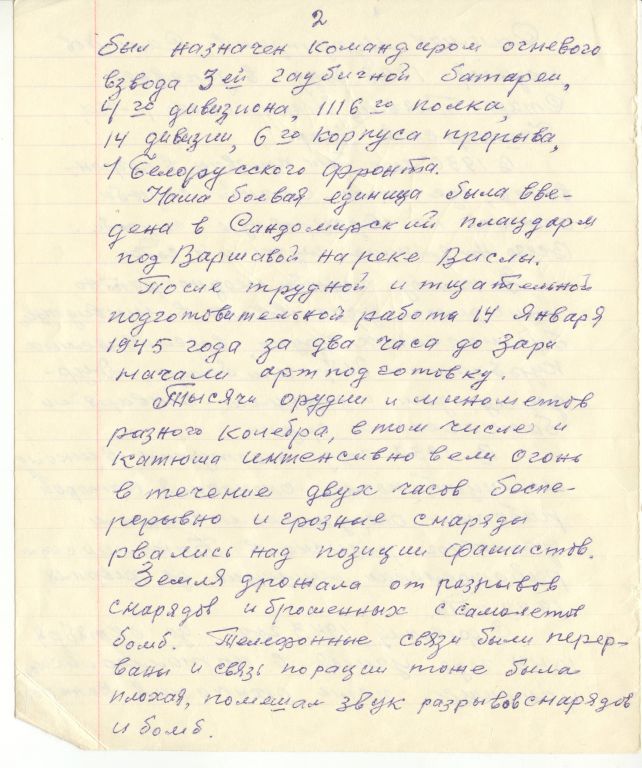 2
был назначен командиром огневого
взвода 3ей гаубичной батареи,
4го дивизиона, 1116го полка,
14 дивизии, 6го корпуса прорыва,
1 Белорусского фронта.
Наша боевая единица была вве-
дена в Сандомирский плацдарм
под Варшавой на реке Вислы.
После трудной и тщательной
подготовительной работа 14 Января
1945 года за два часа до зари
начали артподготовку.
Тысячи орудии и минометов
разного колебра, в том числе и
катюша интенсивно вели огонь
в течение двух часов беспе-
рерывно и грозные снаряды
рвались над позиции фашистов.
Земля дрожала от разрывов
снарядов и брошенных с самолетов
бомб. Телефонные связи были перер-
ваны и связь порации тоже была
плохая, помешал звук разрывов снарядов
и бомб.